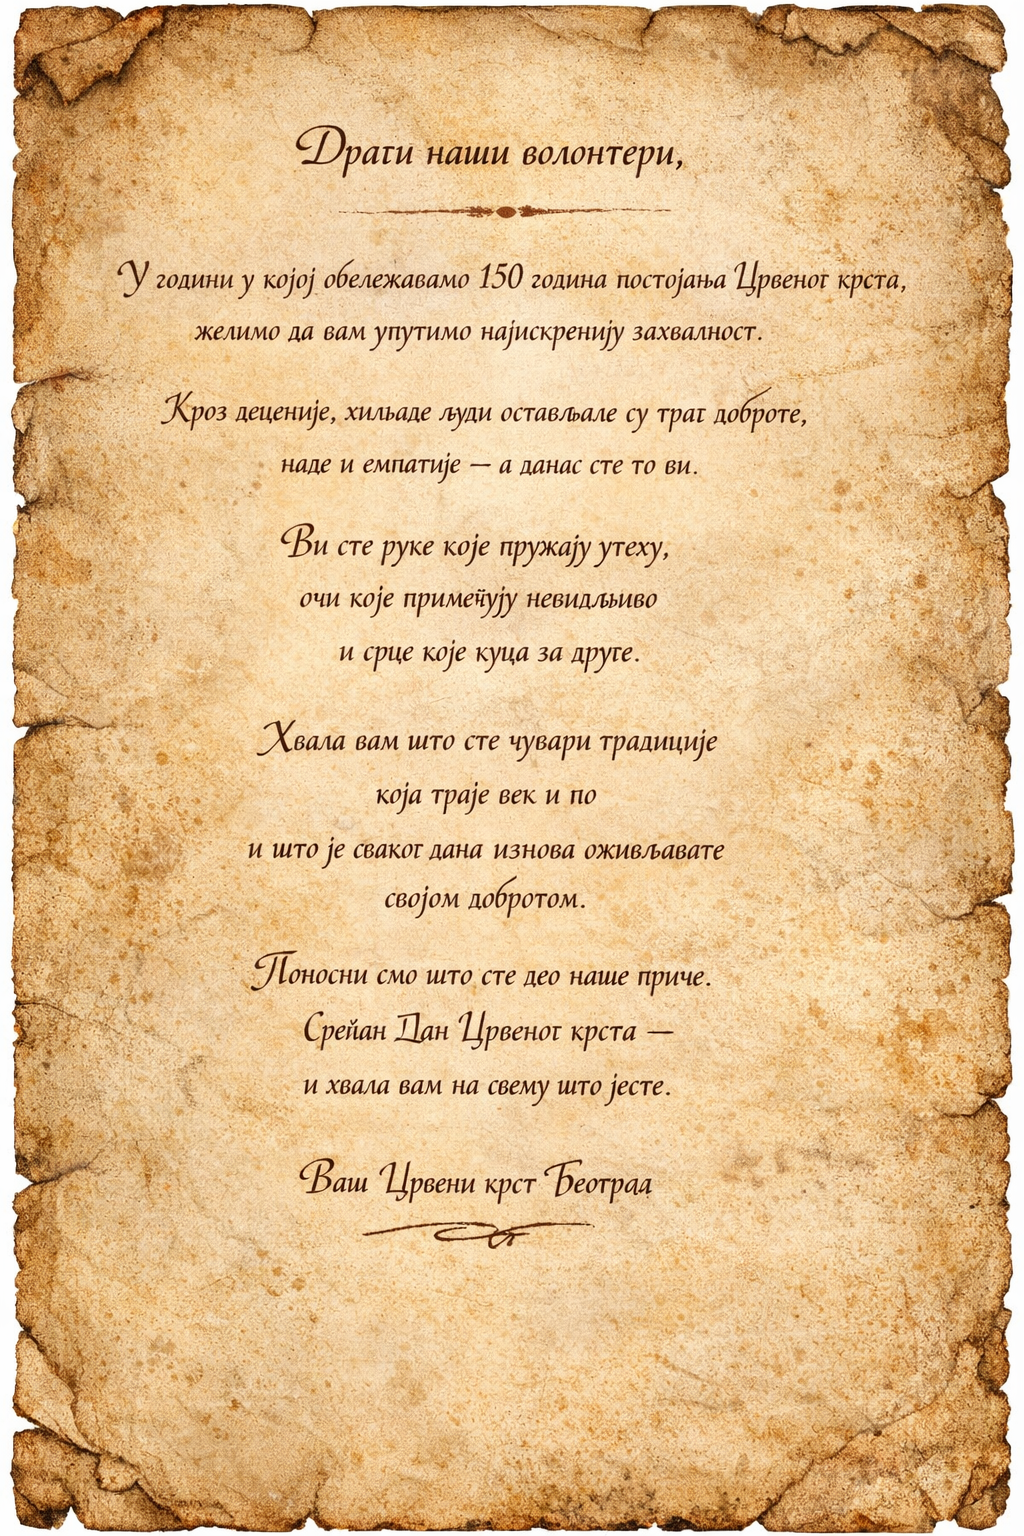 Драги наши волонтери,
У години у којој обележавамо 150 година постојања Црвеног крста,
желимо да вам упутимо најискренију захвалност.
Кроз деценије, хиљаде људи остављале су траг доброте,
наде и емпатије — а данас сте то ви.
Ви сте руке које пружају утеху,
очи које примећују невидљиво
и срце које куца за друге.
Хвала вам што сте чувари традиције
која траје век и по
и што је сваког дана изнова оживљавате
својом добротом.
Поносни смо што сте део наше приче.
Срећан Дан Црвеног крста —
и хвала вам на свему што јесте.
Ваш Црвени крст Београд